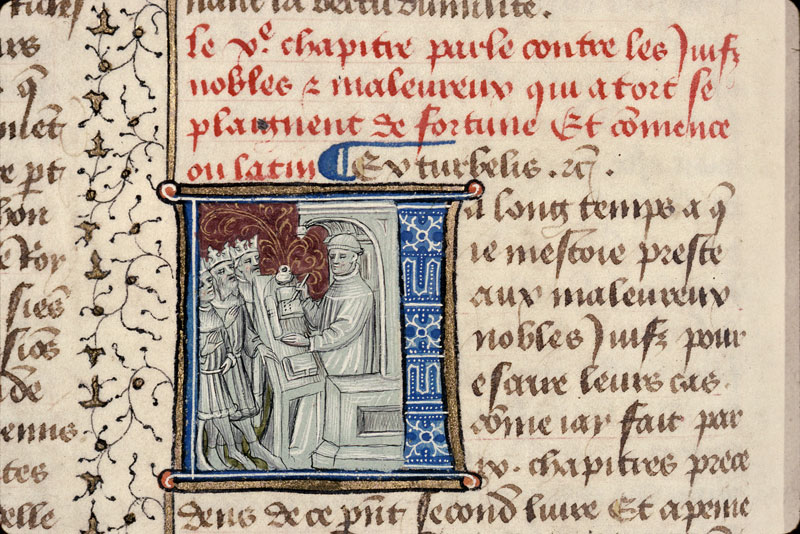 nant la vertu dumilite.
le v.e chapitre parle contre les Juifz
nobles ⁊ maleureux qui a tort se
plaignent de fortune Et cōmence
ou latin ¶ Ex turbelis. ⁊c̄.
a long temps a q̄
ie mestoie preste
aux maleureux
nobles Juifz pour
escrire leurs cas.
cōme iay fait par
iv. chapitres prece
dens de ce pn̄t second liure Et a peine